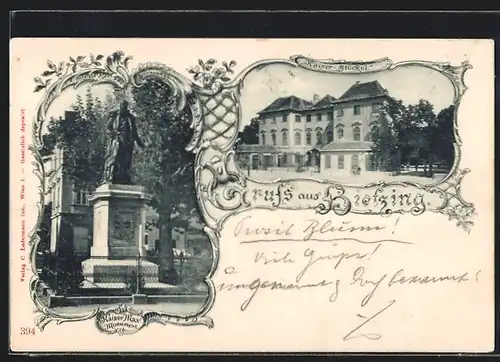 "Kaiser-Stöckel."
Gruss aus Hietzing.
Prosit Blume!
Viele Grüsse!
Kaiser Max
Monument
394
Verlag C. Ledermann jun., Wien I. — Gesetzlich deponirt